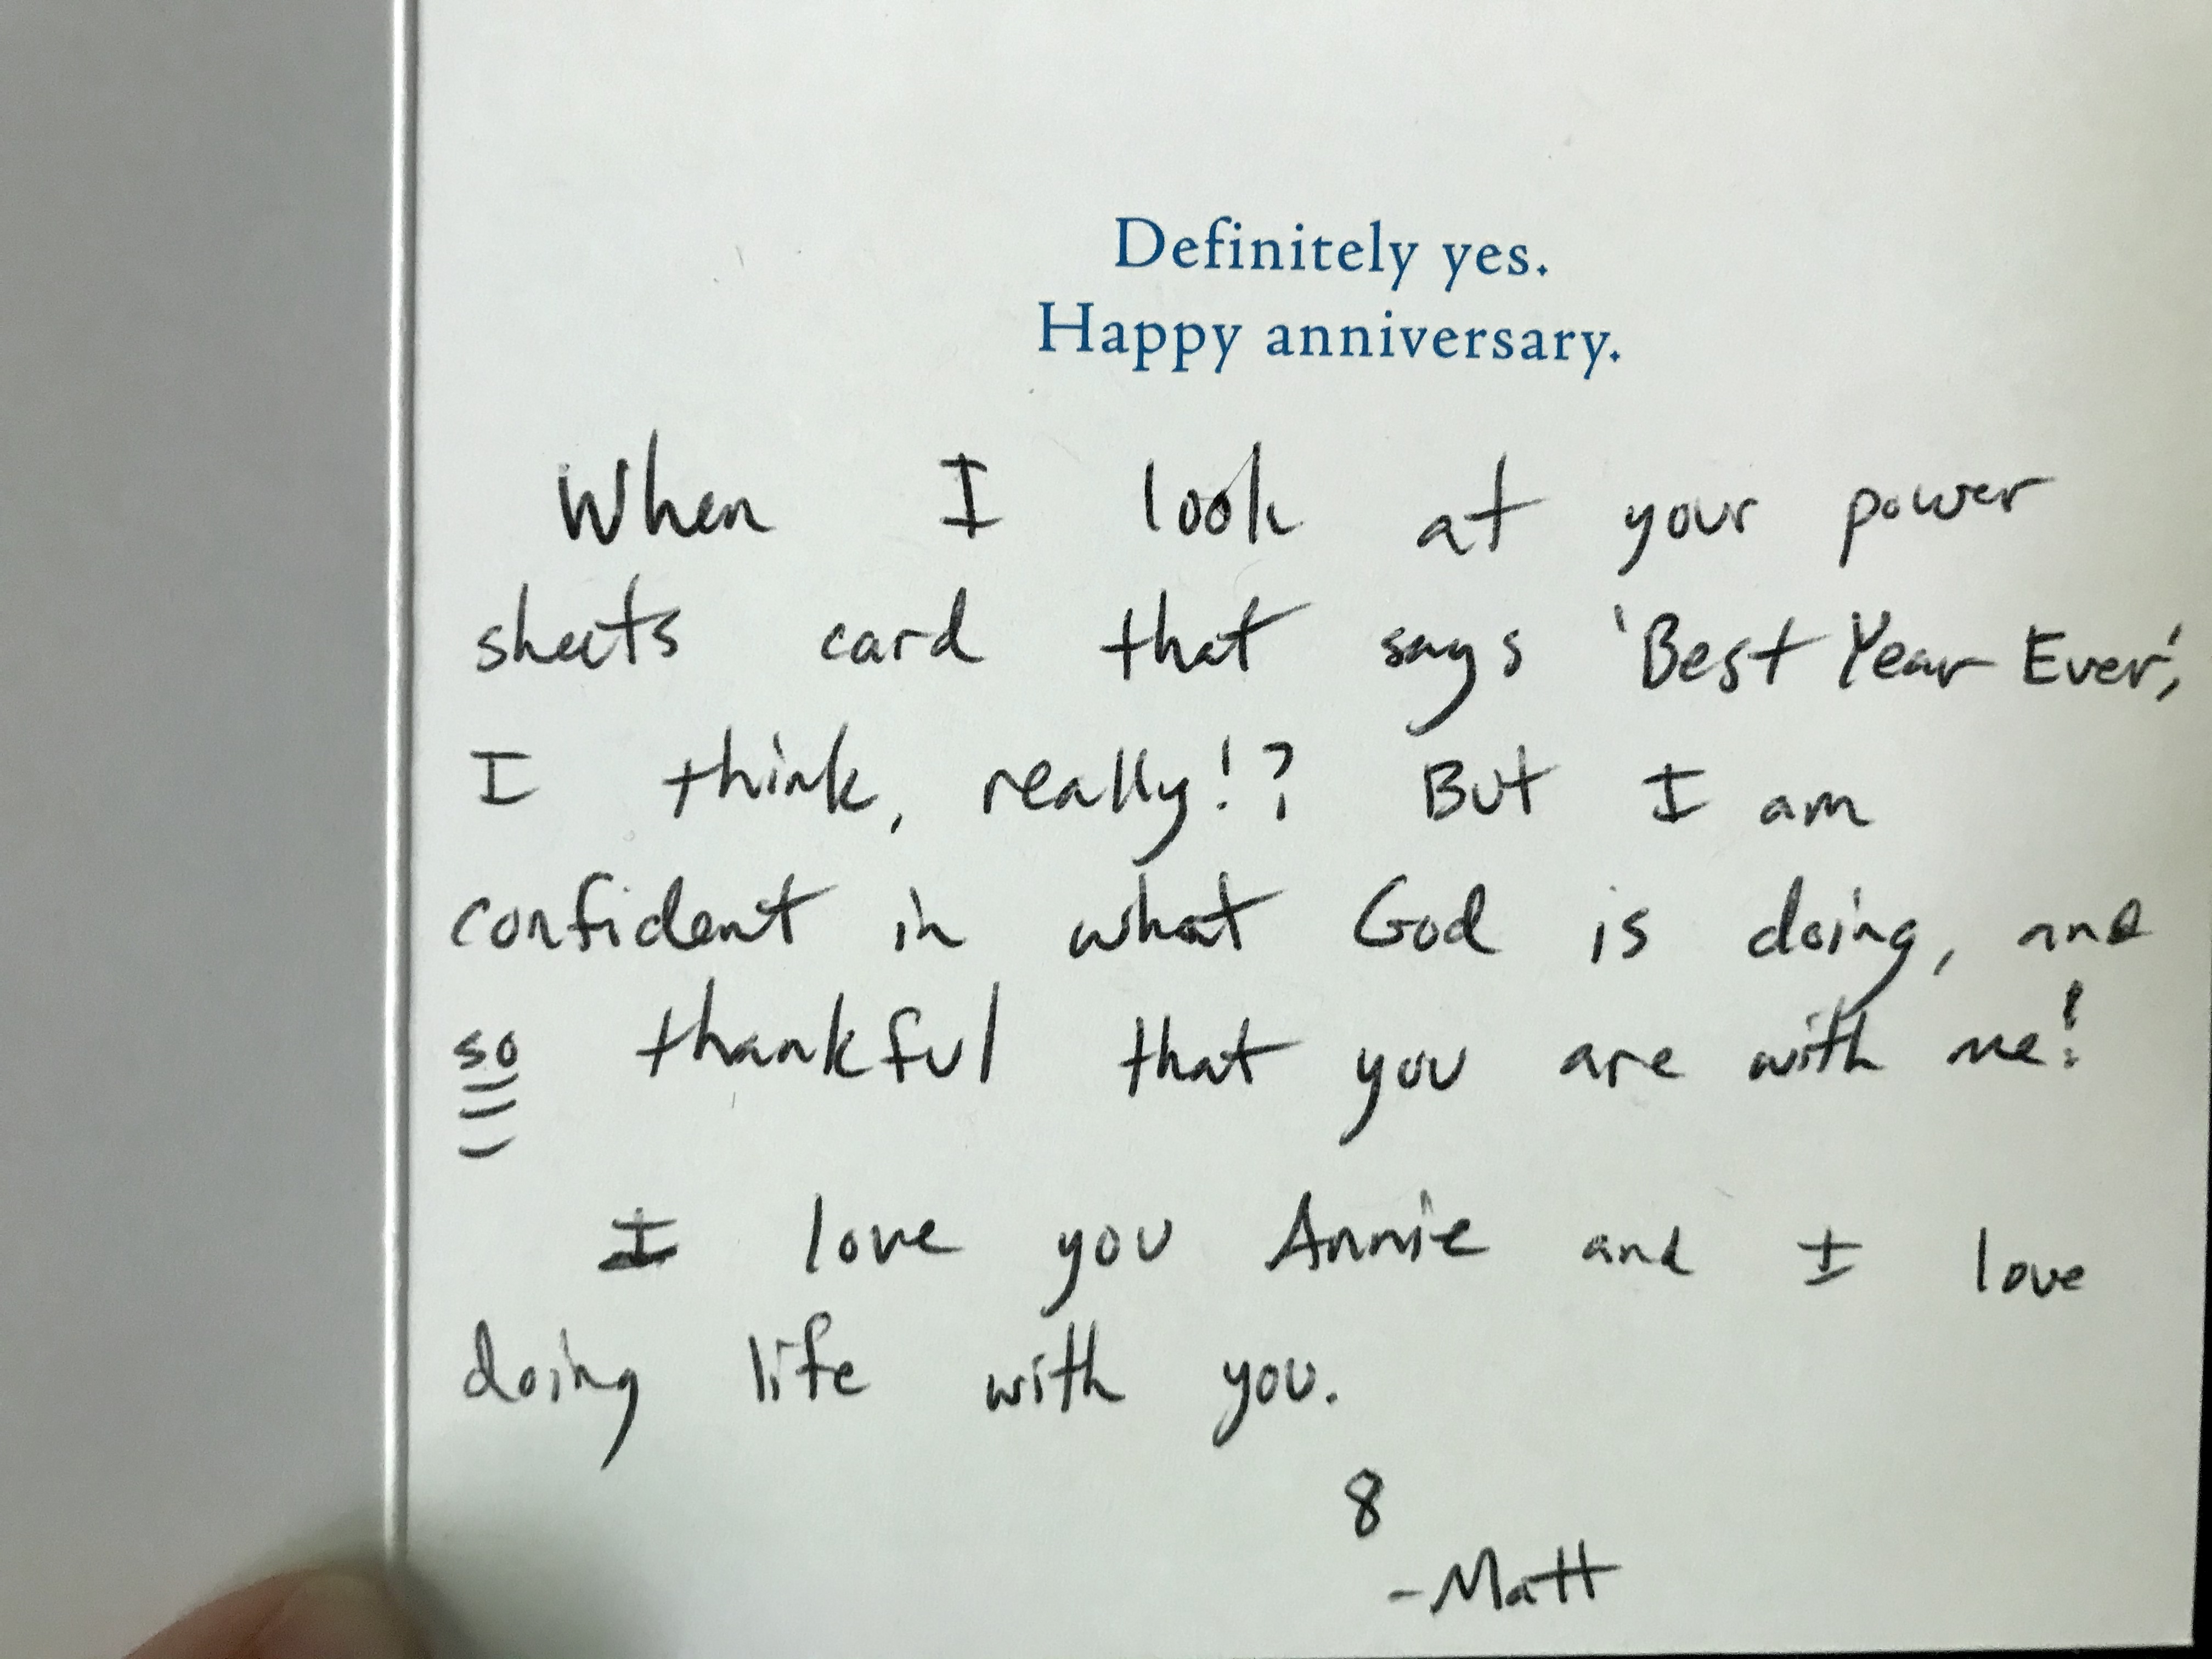 Definitely yes.
Happy anniversary.
When I look at your power
sheets card that says 'Best Year Ever,'
I think, really!? But I am
confident in what God is doing, and
so thankful that you are with me!
I love you Annie and I love
doing life with you.
8
-Matt